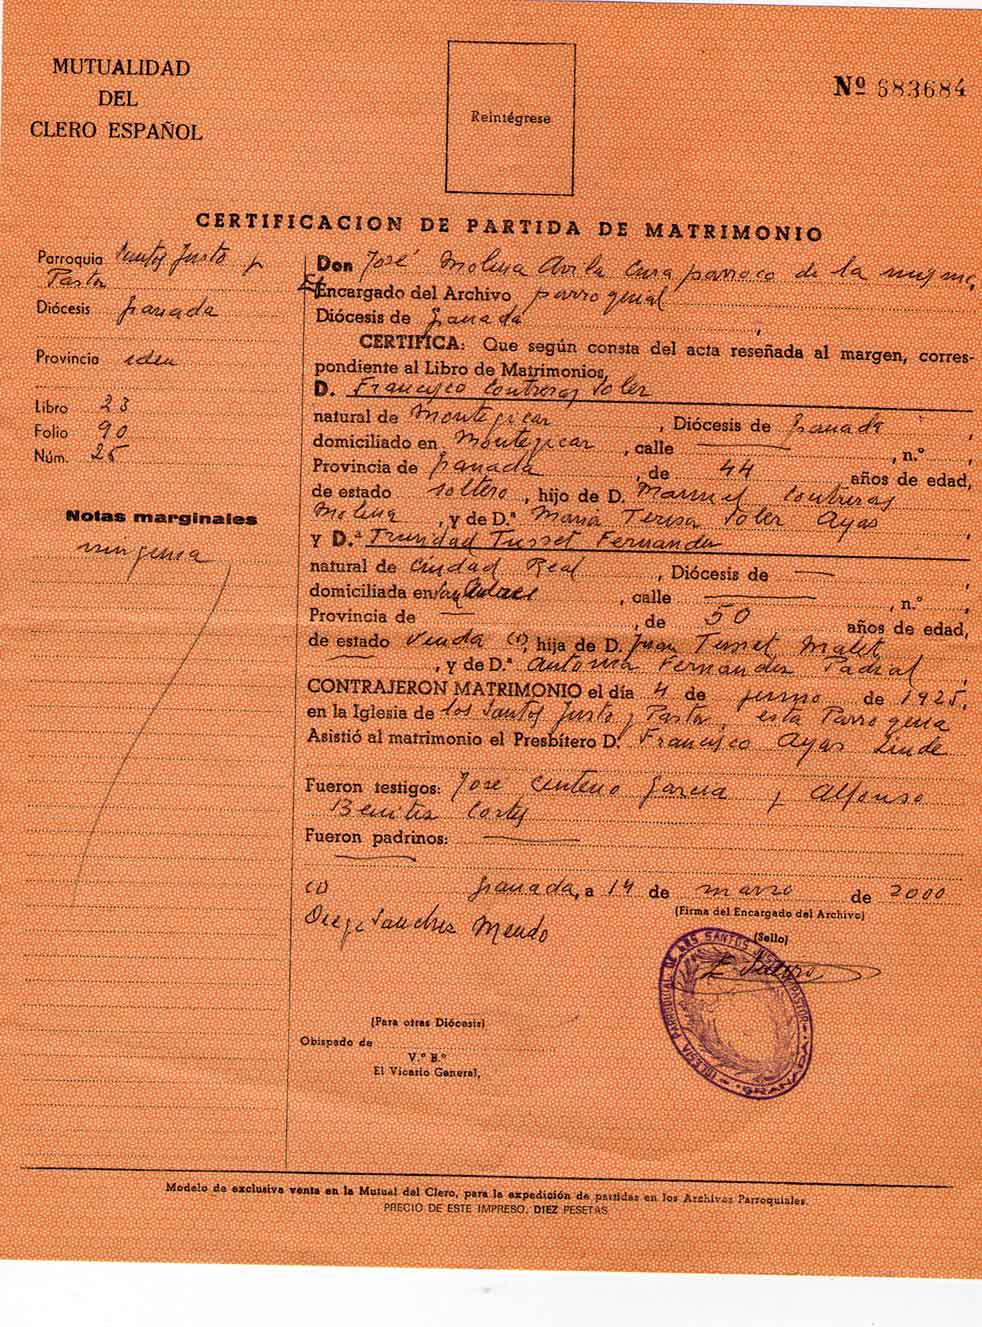 MUTUALIDAD
DEL
CLERO ESPAÑOL
Reintégrese
Nº 683684
CERTIFICACION DE PARTIDA DE MATRIMONIO
Parroquia Santos Justo y
Pastor
Diócesis Granada
Provincia idem
Libro 23
Folio 90
Núm. 25
Notas marginales
ninguna
Don José Molina Avila Cura párroco de la misma,
Encargado del Archivo parroquial
Diócesis de Granada,
CERTIFICA: Que según consta del acta reseñada al margen, corres-
pondiente al Libro de Matrimonios,
D. Francisco Contreras Soler
natural de Montegicar, Diócesis de Granada,
domiciliado en Montegicar, calle —, n.º ,
Provincia de Granada, de 44 años de edad,
de estado soltero, hijo de D. Manuel Contreras
Molina, y de D.ª María Teresa Soler Ayas,
y D.ª Trinidad Tusset Fernandez
natural de Ciudad Real, Diócesis de —,
domiciliada en San Andres, calle —, n.º ,
Provincia de —, de 50 años de edad,
de estado viuda (1), hija de D. Juan Tusset Malet
—, y de D.ª Antonia Fernandez Padial,
CONTRAJERON MATRIMONIO el día 4 de junio de 1925,
en la Iglesia de los Santos Justo y Pastor, esta Parroquia
Asistió al matrimonio el Presbítero D. Francisco Ayas Linde
Fueron testigos: José Centeno Garcia y Alfonso
Benitez Cortes
Fueron padrinos: —
Granada, a 14 de marzo de 2000
(Firma del Encargado del Archivo)
(Sello)
(1)
Diego Sanchez Mendo
IGLESIA PARROQUIAL DE LOS SANTOS JUSTO Y PASTOR
GRANADA
(Para otras Diócesis)
Obispado de
V.º B.º
El Vicario General,
Modelo de exclusiva venta en la Mutual del Clero, para la expedición de partidas en los Archivos Parroquiales.
PRECIO DE ESTE IMPRESO, DIEZ PESETAS